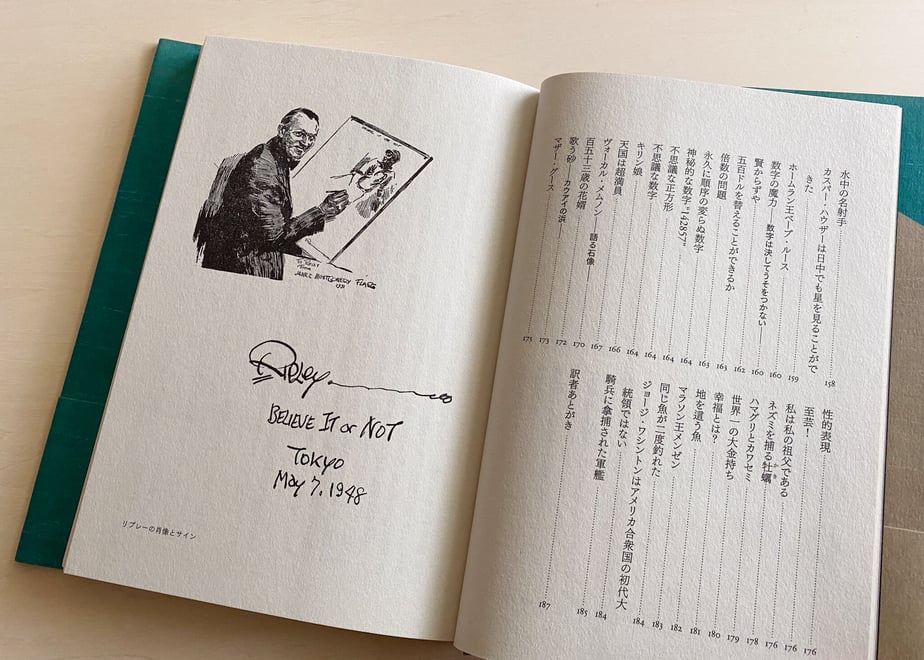 水中の名射手 158
カスパー・ハウザーは日中でも星を見ることがで
きた 159
ホームラン王ベーブ・ルース 160
数字の魔力——数字は決してうそをつかない—— 160
賢からずや 162
五百ドルを替えることができるか 163
倍数の問題 163
永久に順序の変らぬ数字 164
神秘的な数字"142857" 164
不思議な正方形 164
不思議な数字 164
キリン娘 166
天国は超満員 167
ヴォーカル・メムノン 語る石像 170
百五十三歳の花婿 172
歌う砂——カウアイの浜 173
マザー・グース 175
性的表現 176
至芸！ 176
私は私の祖父である 176
ネズミを捕る牡蠣 178
ハマグリとカワセミ 179
世界一の大金持ち 180
幸福とは？ 181
地を這う魚 182
マラソン王メンゼン 183
同じ魚が二度釣れた 184
ジョージ・ワシントンはアメリカ合衆国の初代大
統領ではない 184
騎兵に拿捕された軍艦 185
訳者あとがき 187
JAMES MONTGOMERY FLAGG
Ripley
BELIEVE IT or NOT
Tokyo
May 7, 1948
リプレーの肖像とサイン